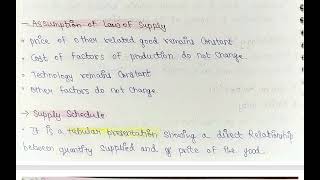 → Assumption of Law of Supply
• price of other related good remains Constant
• Cost of factors of production do not change
• Technology remains Constant
• Other factors do not change
→ Supply Schedule
• It is a tabular presentation showing a direct Relationship
between quantity supplied and of price of the good